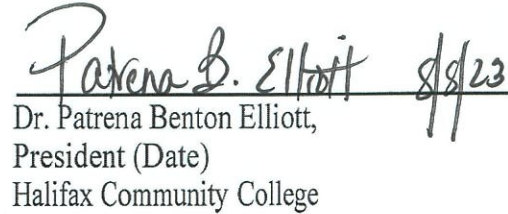 Patrena B. Elliott 8/8/23
Dr. Patrena Benton Elliott,
President (Date)
Halifax Community College